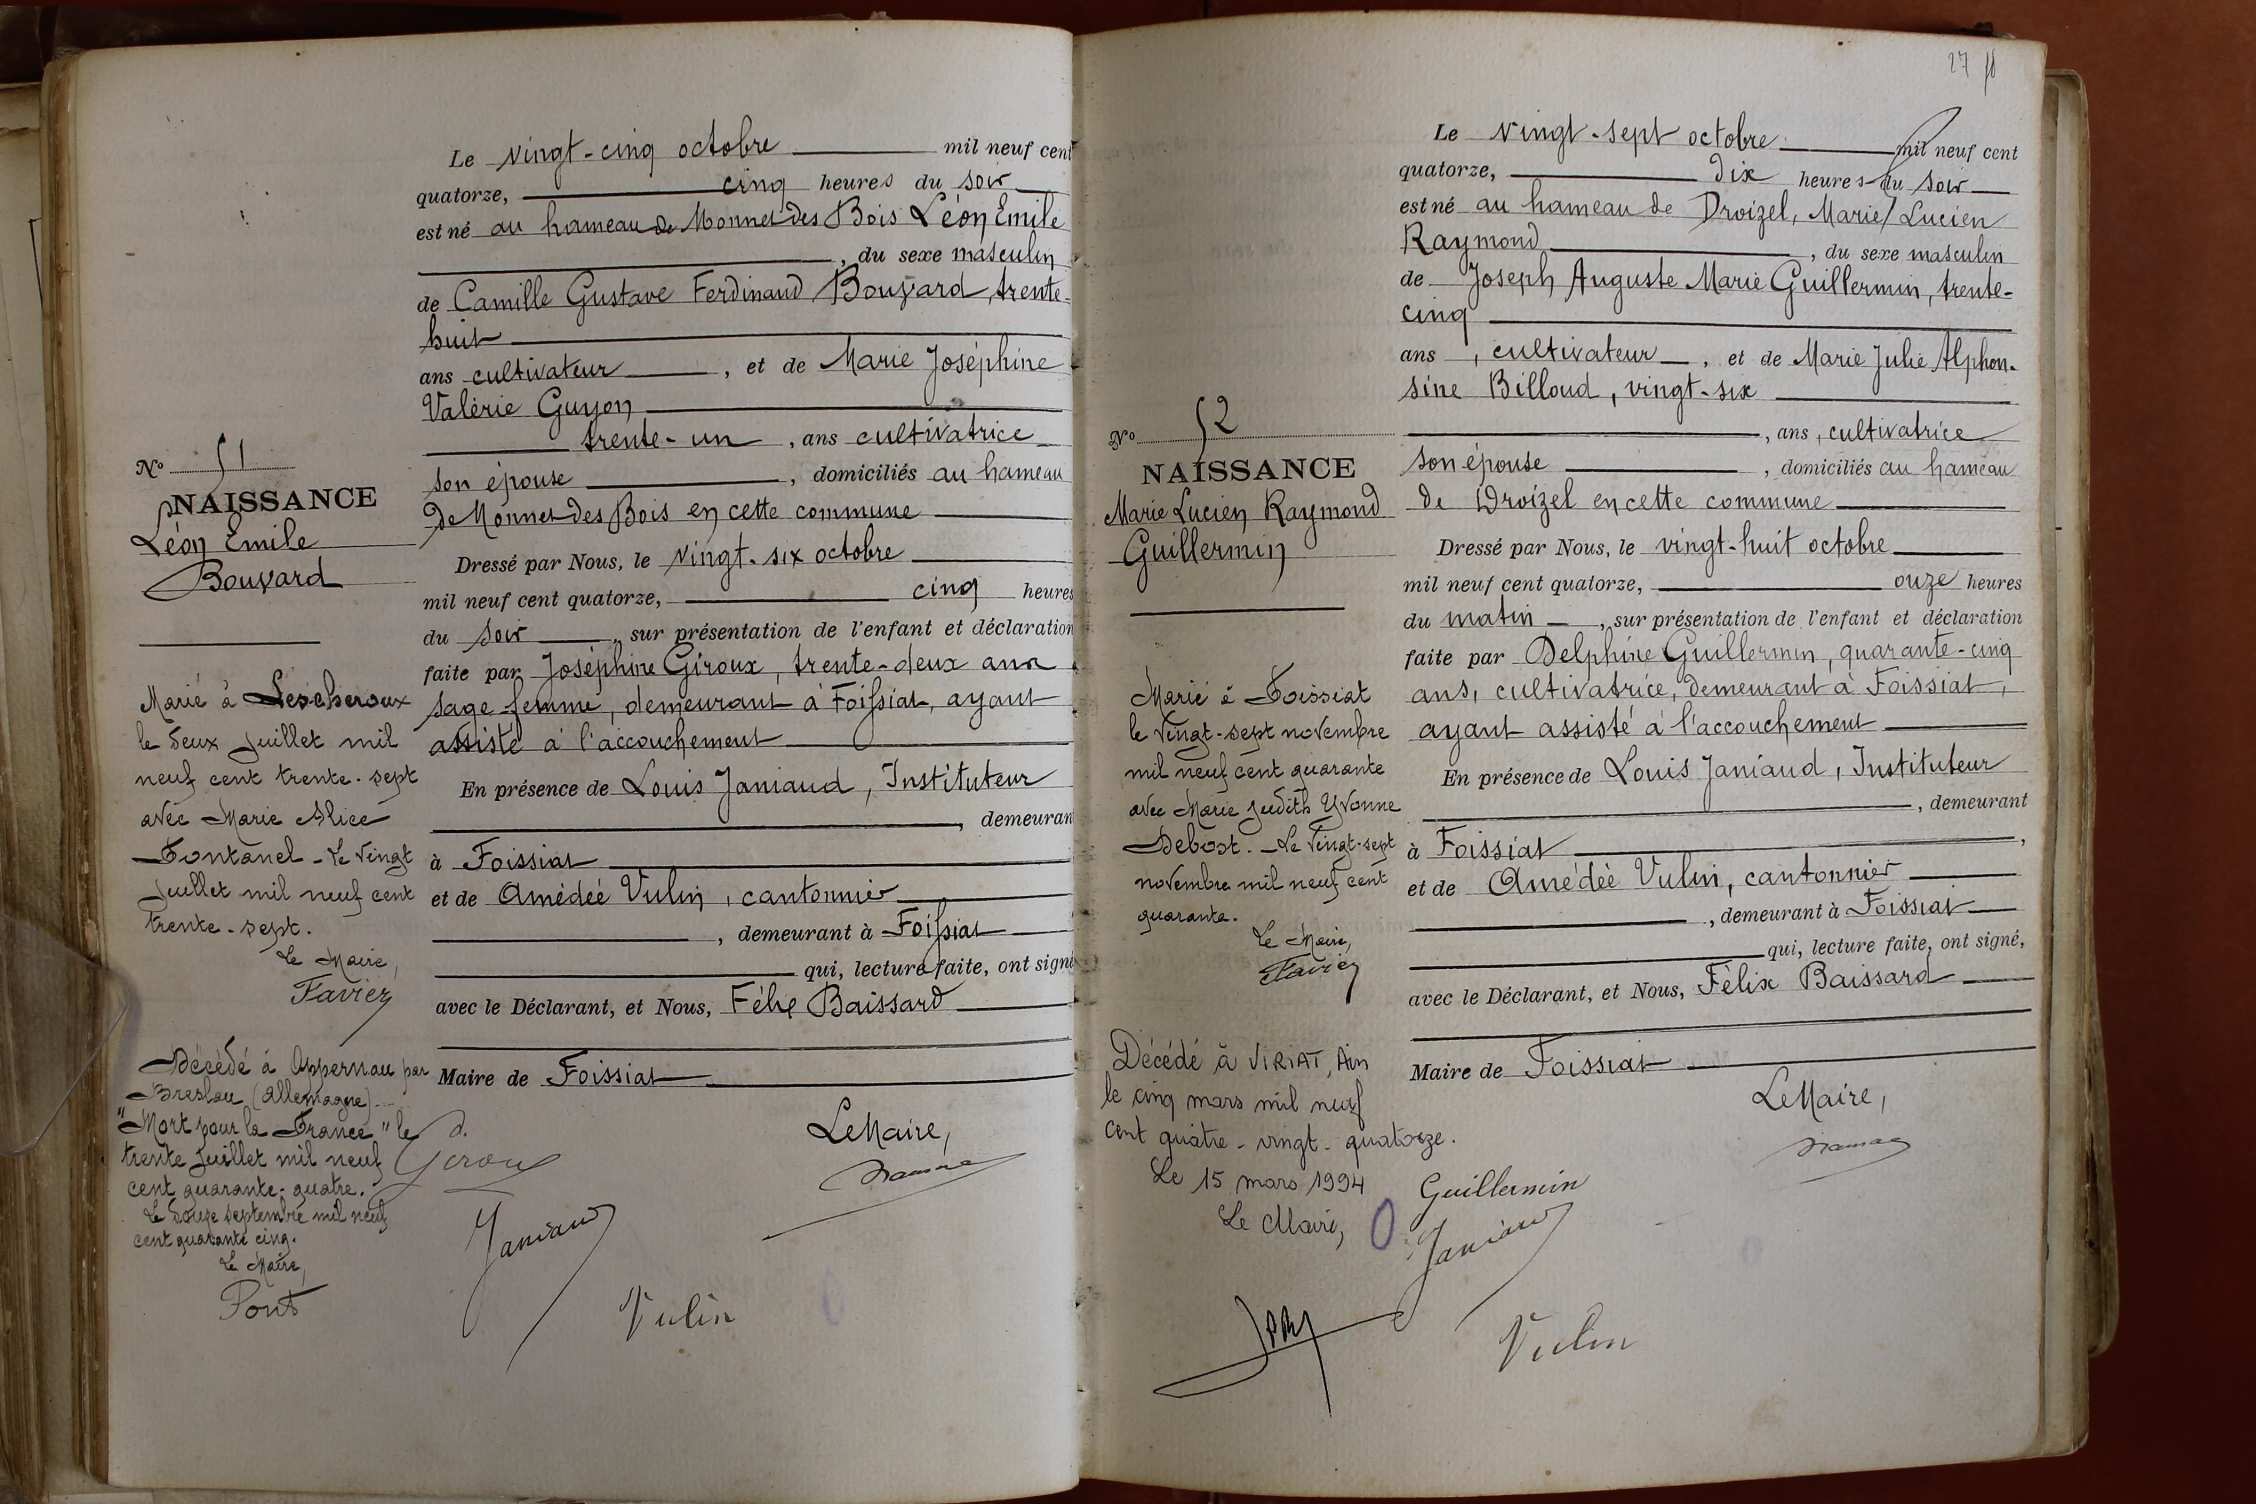 Le vingt-cinq octobre mil neuf cent
quatorze, cinq heures du soir
est né au hameau de Monnet des Bois Léon Emile
, du sexe masculin
de Camille Gustave Ferdinand Bouvard, trente-
huit
ans cultivateur , et de Marie Joséphine
Valérie Guyon
trente-un , ans cultivatrice
son épouse , domiciliés au hameau
de Monnet des Bois en cette commune
Dressé par Nous, le vingt-six octobre
mil neuf cent quatorze, cinq heures
du soir , sur présentation de l'enfant et déclaration
faite par Joséphine Giroux, trente-deux ans
sage femme, demeurant à Foissiat, ayant
assisté à l'accouchement
En présence de Louis Janiaud, Instituteur
, demeurant
à Foissiat
et de Amédée Vulin, cantonnier
, demeurant à Foissiat
qui, lecture faite, ont signé
avec le Déclarant, et Nous, Félix Baissard
Maire de Foissiat
Le Maire,
Giroux
Janiaud
Vulin
No 51
NAISSANCE
Léon Emile
Bouvard
Marié à Lescheroux
le deux Juillet mil
neuf cent trente-sept
avec Marie Alice
Fontanel - Le vingt
Juillet mil neuf cent
trente-sept.
Le Maire,
Favier
Décédé à Oppernau par
Breslau (Allemagne)
"Mort pour la France" le
trente Juillet mil neuf
cent quarante-quatre.
Le douze septembre mil neuf
cent quarante cinq.
Le Maire,
Pont
27
Le vingt-sept octobre mil neuf cent
quatorze, dix heures du soir
est né au hameau de Droizel, Marie Lucien
Raymond , du sexe masculin
de Joseph Auguste Marie Guillermin, trente-
cinq
ans , cultivateur , et de Marie Julie Alphon-
sine Billoud, vingt-six
, ans , cultivatrice
son épouse , domiciliés au hameau
de Droizel en cette commune
Dressé par Nous, le vingt-huit octobre
mil neuf cent quatorze, onze heures
du matin , sur présentation de l'enfant et déclaration
faite par Delphine Guillermin, quarante-cinq
ans, cultivatrice, demeurant à Foissiat,
ayant assisté à l'accouchement
En présence de Louis Janiaud, Instituteur
, demeurant
à Foissiat ,
et de Amédée Vulin, cantonnier
, demeurant à Foissiat
qui, lecture faite, ont signé,
avec le Déclarant, et Nous, Félix Baissard
Maire de Foissiat
Le Maire,
Guillermin
Janiaud
Vulin
No 52
NAISSANCE
Marie Lucien Raymond
Guillermin
Marié à Foissiat
le vingt-sept novembre
mil neuf cent quarante
avec Marie Judith Yvonne
Debost. - Le vingt-sept
novembre mil neuf cent
quarante.
Le Maire,
Favier
Décédé à VIRIAT, Ain
le cinq mars mil neuf
cent quatre-vingt-quatorze.
Le 15 mars 1994
Le Maire,